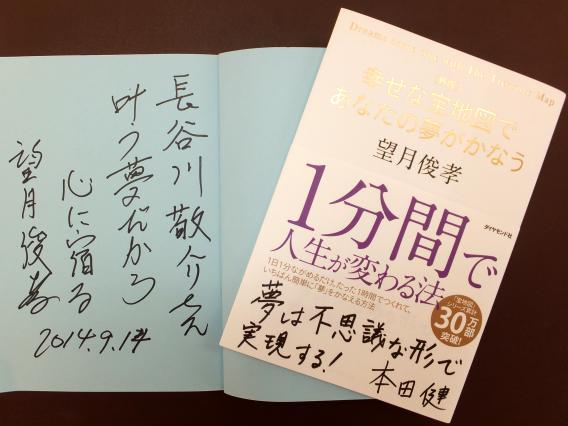 長谷川敬介さん
叶う夢だから
心に宿る
望月俊孝
2014.9.14
Dreams come true with the Treasure Map
新版
幸せな宝地図で
あなたの夢がかなう
望月俊孝
ダイヤモンド社
1分間で
人生が変わる法
1日1分ながめるだけ、たった1時間でつくれて、
いちばん簡単に「夢」をかなえる方法
「宝地図」
シリーズ累計
30万部
突破!
夢は不思議な形で
実現する!
本田健